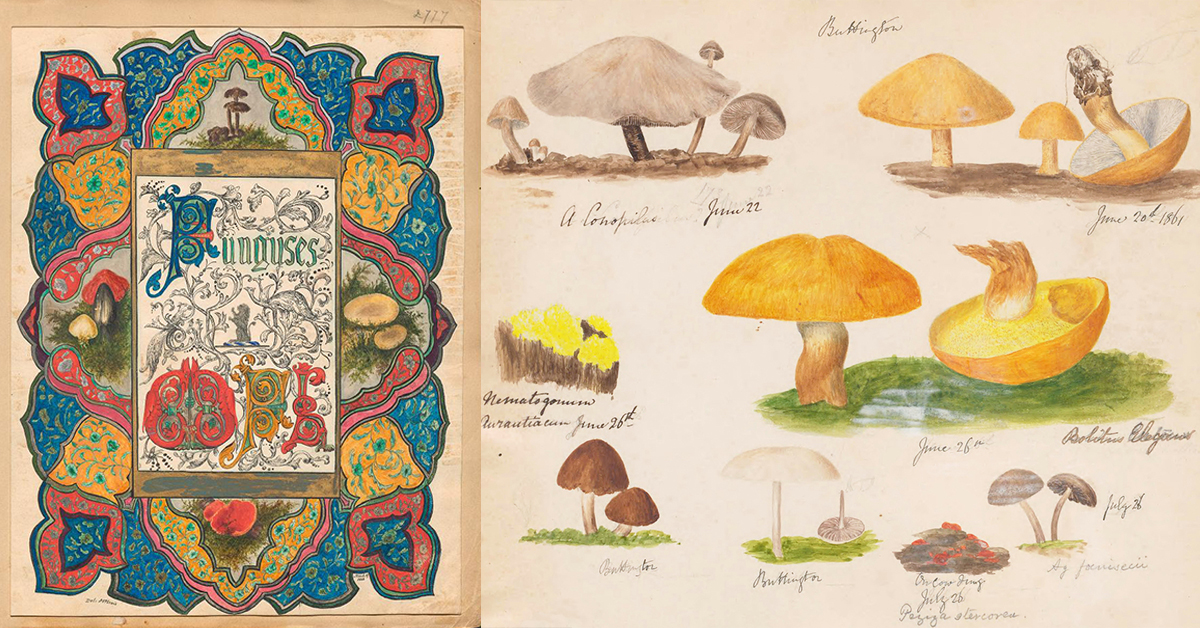 2777
Funguses
M P L
Buttington
A Conopilus June 22
June 20th 1861
Nematogonum
Aurantiacum June 26th
June 26th
Boletus Elegans
Buttington
Buttington
On Cow dung
July 26
Peziza stercorea.
July 26
Ag foenisecii